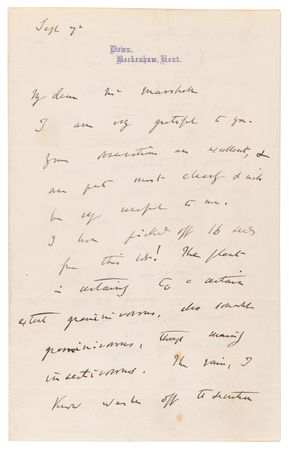 Sept 7th
Down,
Beckenham, Kent.
My dear Mr Marshall
I am very grateful to you.
Your observations are excellent, &
are put most clearly & will
be very useful to me.
I have picked off 16 seeds
from this lot! The plant
is certainly to a certain
extent graminivorous, also somewhat
graminivorous, though mainly
insectivorous. The rain, I
know washes off the secretion